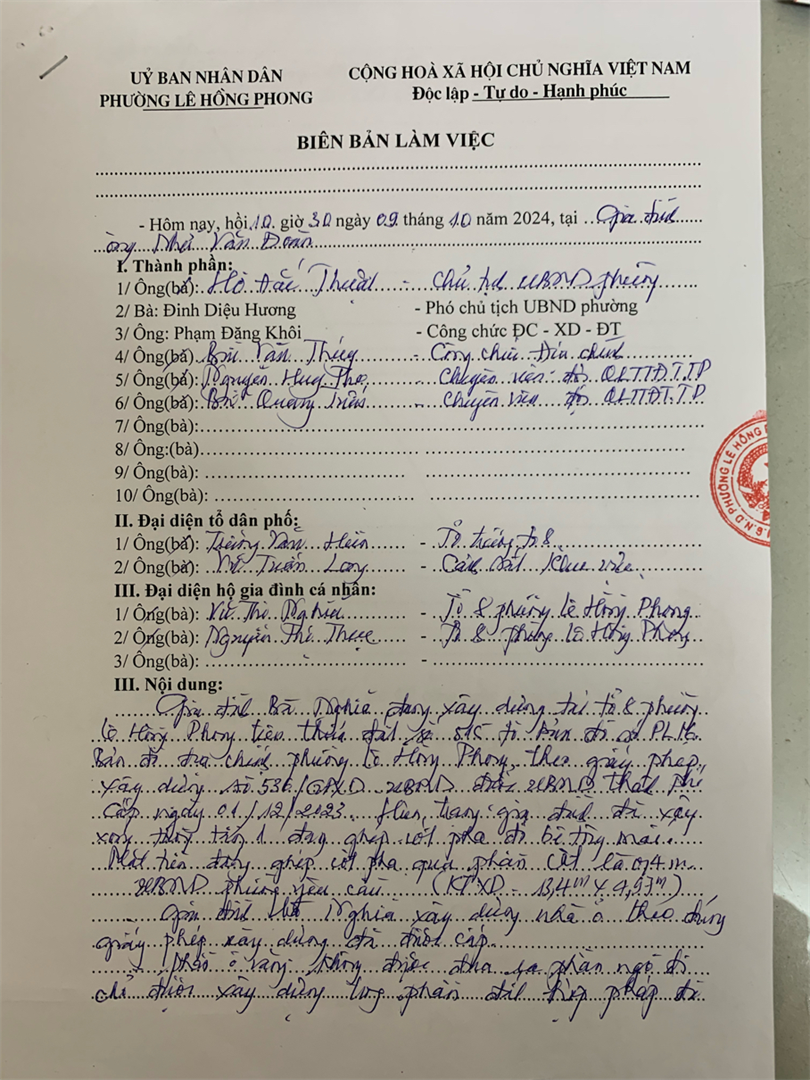 UỶ BAN NHÂN DÂN
PHƯỜNG LÊ HỒNG PHONG
CỘNG HOÀ XÃ HỘI CHỦ NGHĨA VIỆT NAM
Độc lập - Tự do - Hạnh phúc
BIÊN BẢN LÀM VIỆC
- Hôm nay, hồi 10 giờ 30 ngày 09 tháng 10 năm 2024, tại Gia đình
ông Văn Đoàn
I. Thành phần:
1/ Ông(bà): Hồ Đắc - Chủ tịch UBND phường
2/ Bà: Đinh Diệu Hương - Phó chủ tịch UBND phường
3/ Ông: Phạm Đăng Khôi - Công chức ĐC - XD - ĐT
4/ Ông(bà) Bùi Văn - Công chức Địa chính
5/ Ông(bà) Nguyễn Huy - Chuyên viên đội QLTTĐT.TP
6/ Ông(bà): Quang - Chuyên viên đội QLTTĐT.TP
7/ Ông(bà):
8/ Ông:(bà)
9/ Ông(bà):
10/ Ông(bà):
II. Đại diện tổ dân phố:
1/ Ông(bà): Văn - Tổ trưởng tổ 8
2/ Ông(bà): Tuấn Long - Cảnh sát khu vực
III. Đại diện hộ gia đình cá nhân:
1/ Ông(bà): Vũ Thị Nghĩa - Tổ 8 phường Lê Hồng Phong
2/ Ông(bà): Nguyễn Thị - Tổ 8 phường Lê Hồng Phong
3/ Ông(bà): -
III. Nội dung:
Gia đình Bà Nghĩa đang xây dựng tại tổ 8 phường
Lê Hồng Phong trên thửa đất số 515 tờ bản đồ số
Bản đồ địa chính phường Lê Hồng Phong, theo giấy phép
xây dựng số 536/GPXD UBND thành phố
cấp ngày 01/12/2023. Hiện trạng gia đình đã xây
xong tường tầng 1 đang ghép cốt pha đổ bê tông mái.
Mặt tiền đang ghép cốt pha quá phần đất là 0,4 m
UBND phường yêu cầu (KTXD - 13,4m x 4,93m)
Gia đình bà Nghĩa xây dựng nhà ở theo đúng
giấy phép xây dựng đã được cấp
không được đưa ra phần ngõ đi
chỉ được xây dựng trong phần đất hợp pháp đã